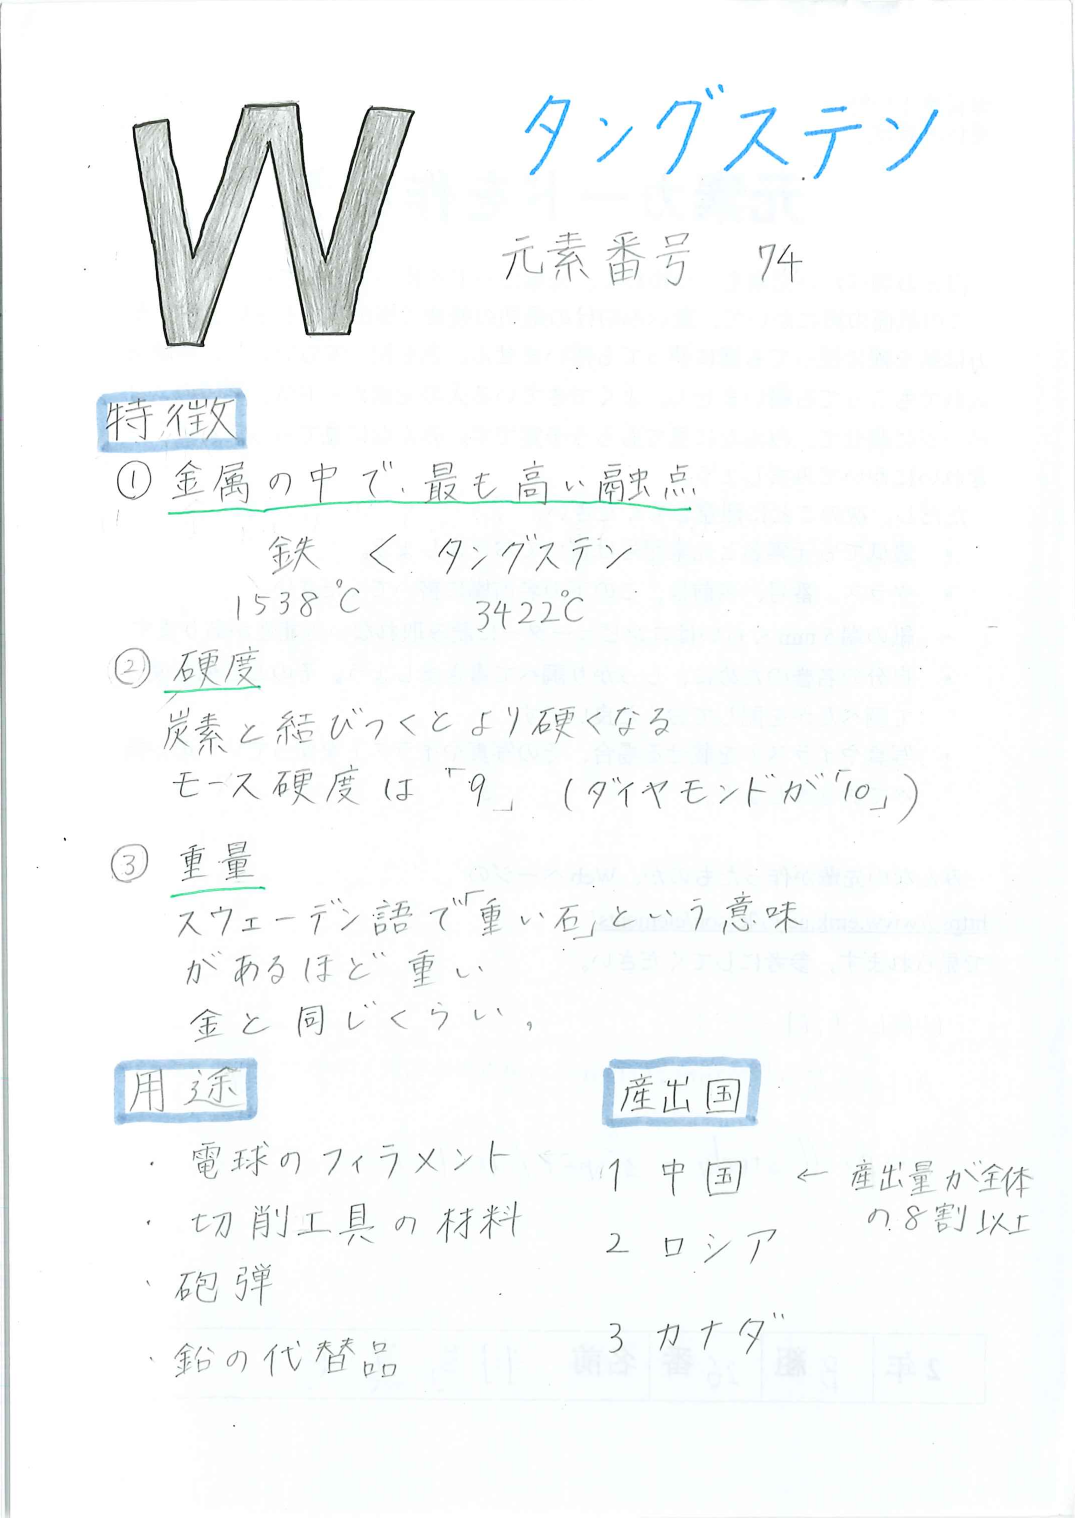 W
タングステン
元素番号 74
特徴
① 金属の中で、最も高い融点
鉄 < タングステン
1538℃ 3422℃
② 硬度
炭素と結びつくとより硬くなる
モース硬度は「9」(ダイヤモンドが「10」)
③ 重量
スウェーデン語で「重い石」という意味
があるほど重い
金と同じくらい。
用途
・電球のフィラメント
・切削工具の材料
・砲弾
・鉛の代替品
産出国
1 中国 ← 産出量が全体
の8割以上
2 ロシア
3 カナダ